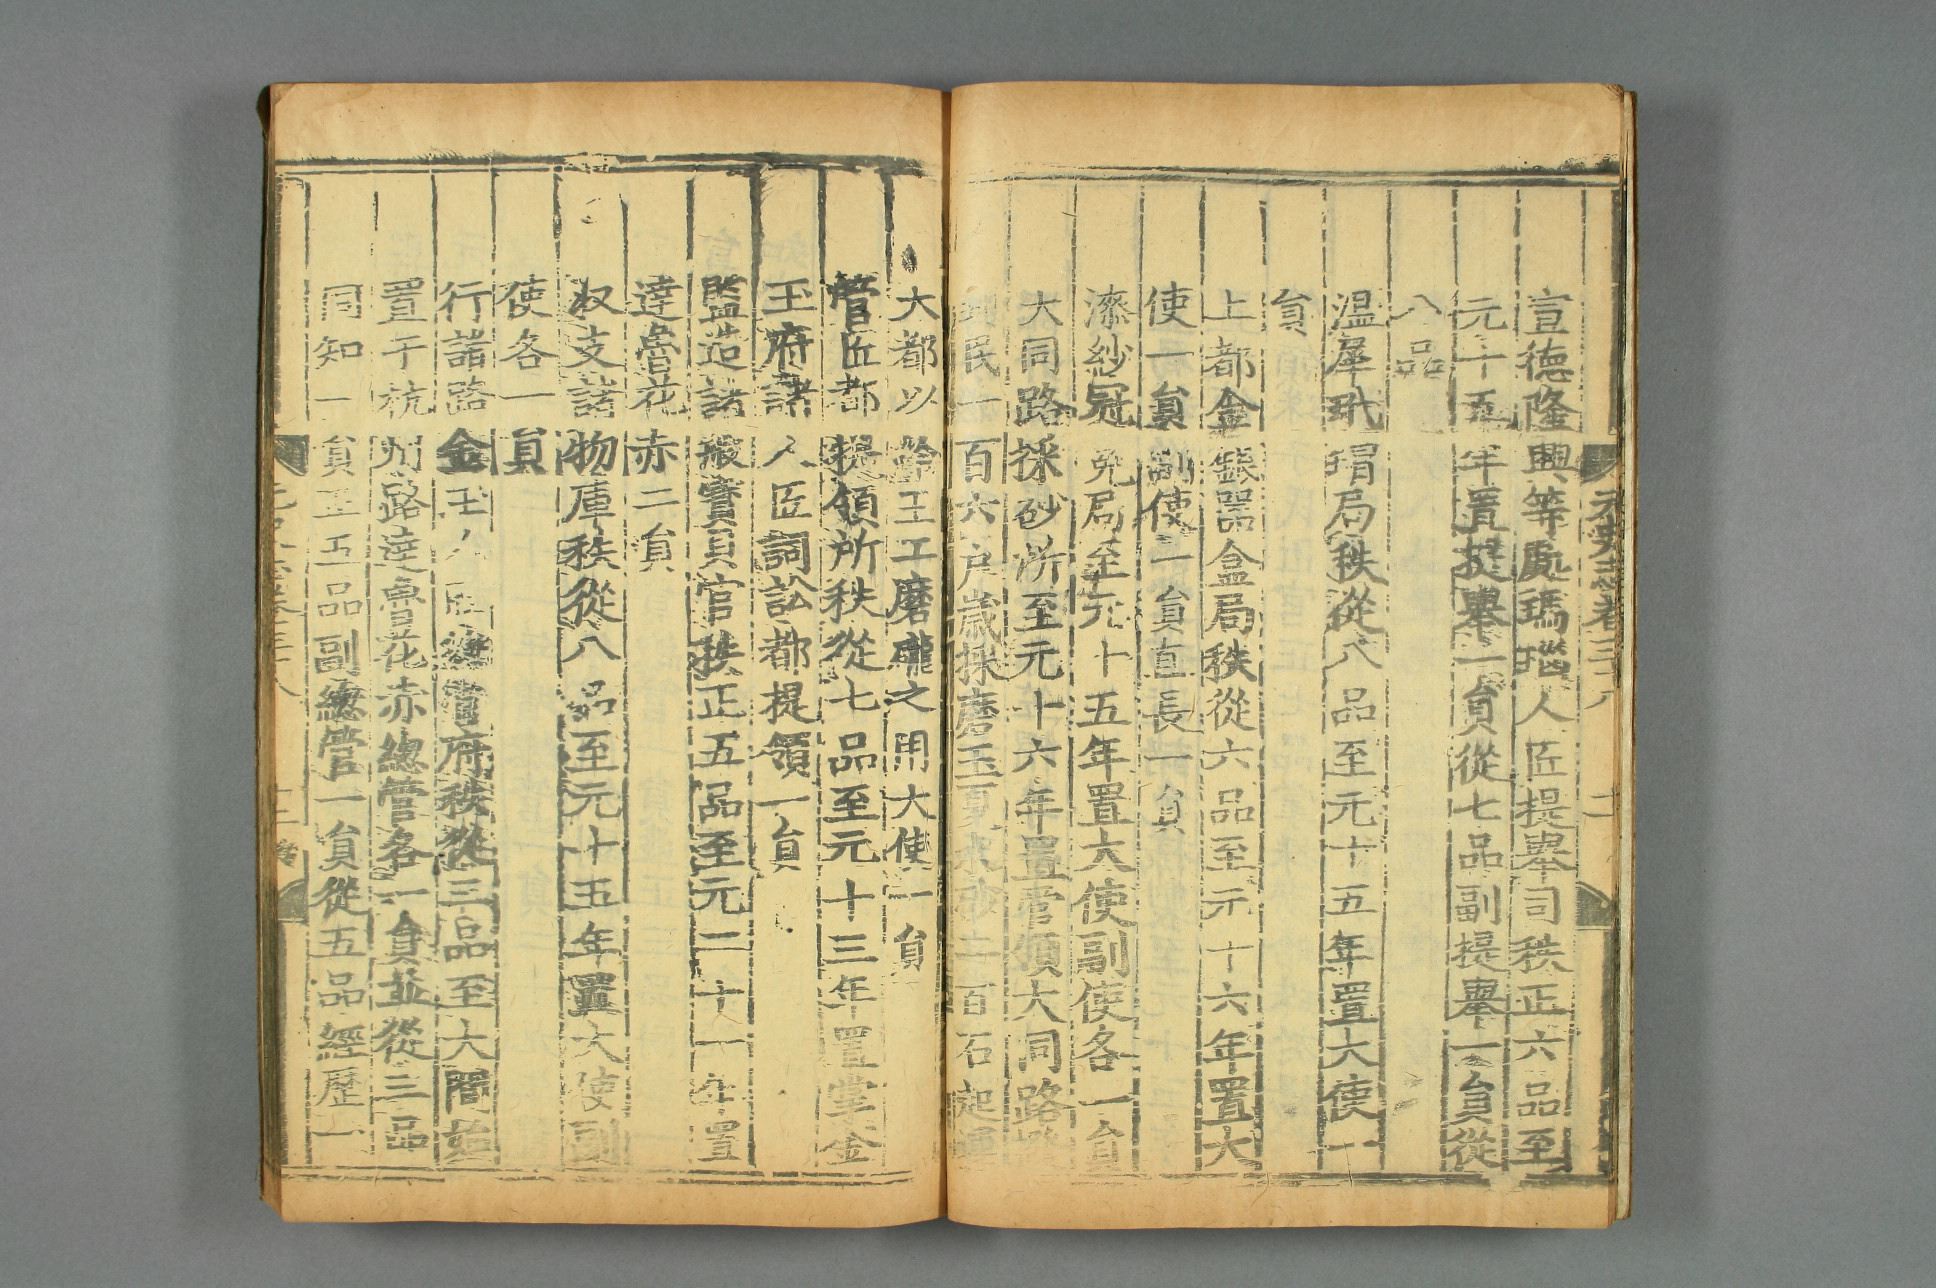 元史志卷三十八
十一
宣德隆興等處瑪瑙人匠提舉司秩正六品至
元十五年置提舉一貟從七品副提舉一貟從
八品
温犀玳瑁局秩從八品至元十五年置大使一
貟
上都金銀器盒局秩從六品至元十六年置大
使一貟副使一貟直長一貟
漆紗冠冕局至元十五年置大使副使各一貟
大同路採砂所至元十六年置管領大同路
民一百六户歳採磨玉夏水砂二百石起運
大都以給玉工磨礲之用大使一貟
管匠都提領所秩從七品至元十三年置掌金
玉府諸人匠詞訟都提領一貟
監造諸般寳貝官秩正五品至元二十一年置
達魯花赤二貟
収支諸物庫秩從八品至元十五年置大使副
使各一貟
行諸路金玉人匠總管府秩從三品至大間始
置于杭州路達魯花赤總管各一貟並從三品
同知一貟正五品副總管一貟從五品經歷一
元史志卷三十八
十二